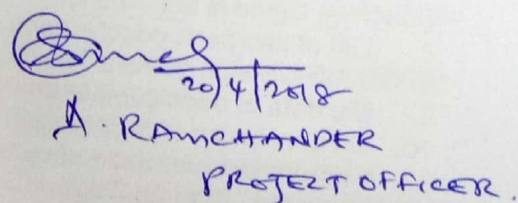 20/4/2018
A. RAMCHANDER
PROJECT OFFICER.